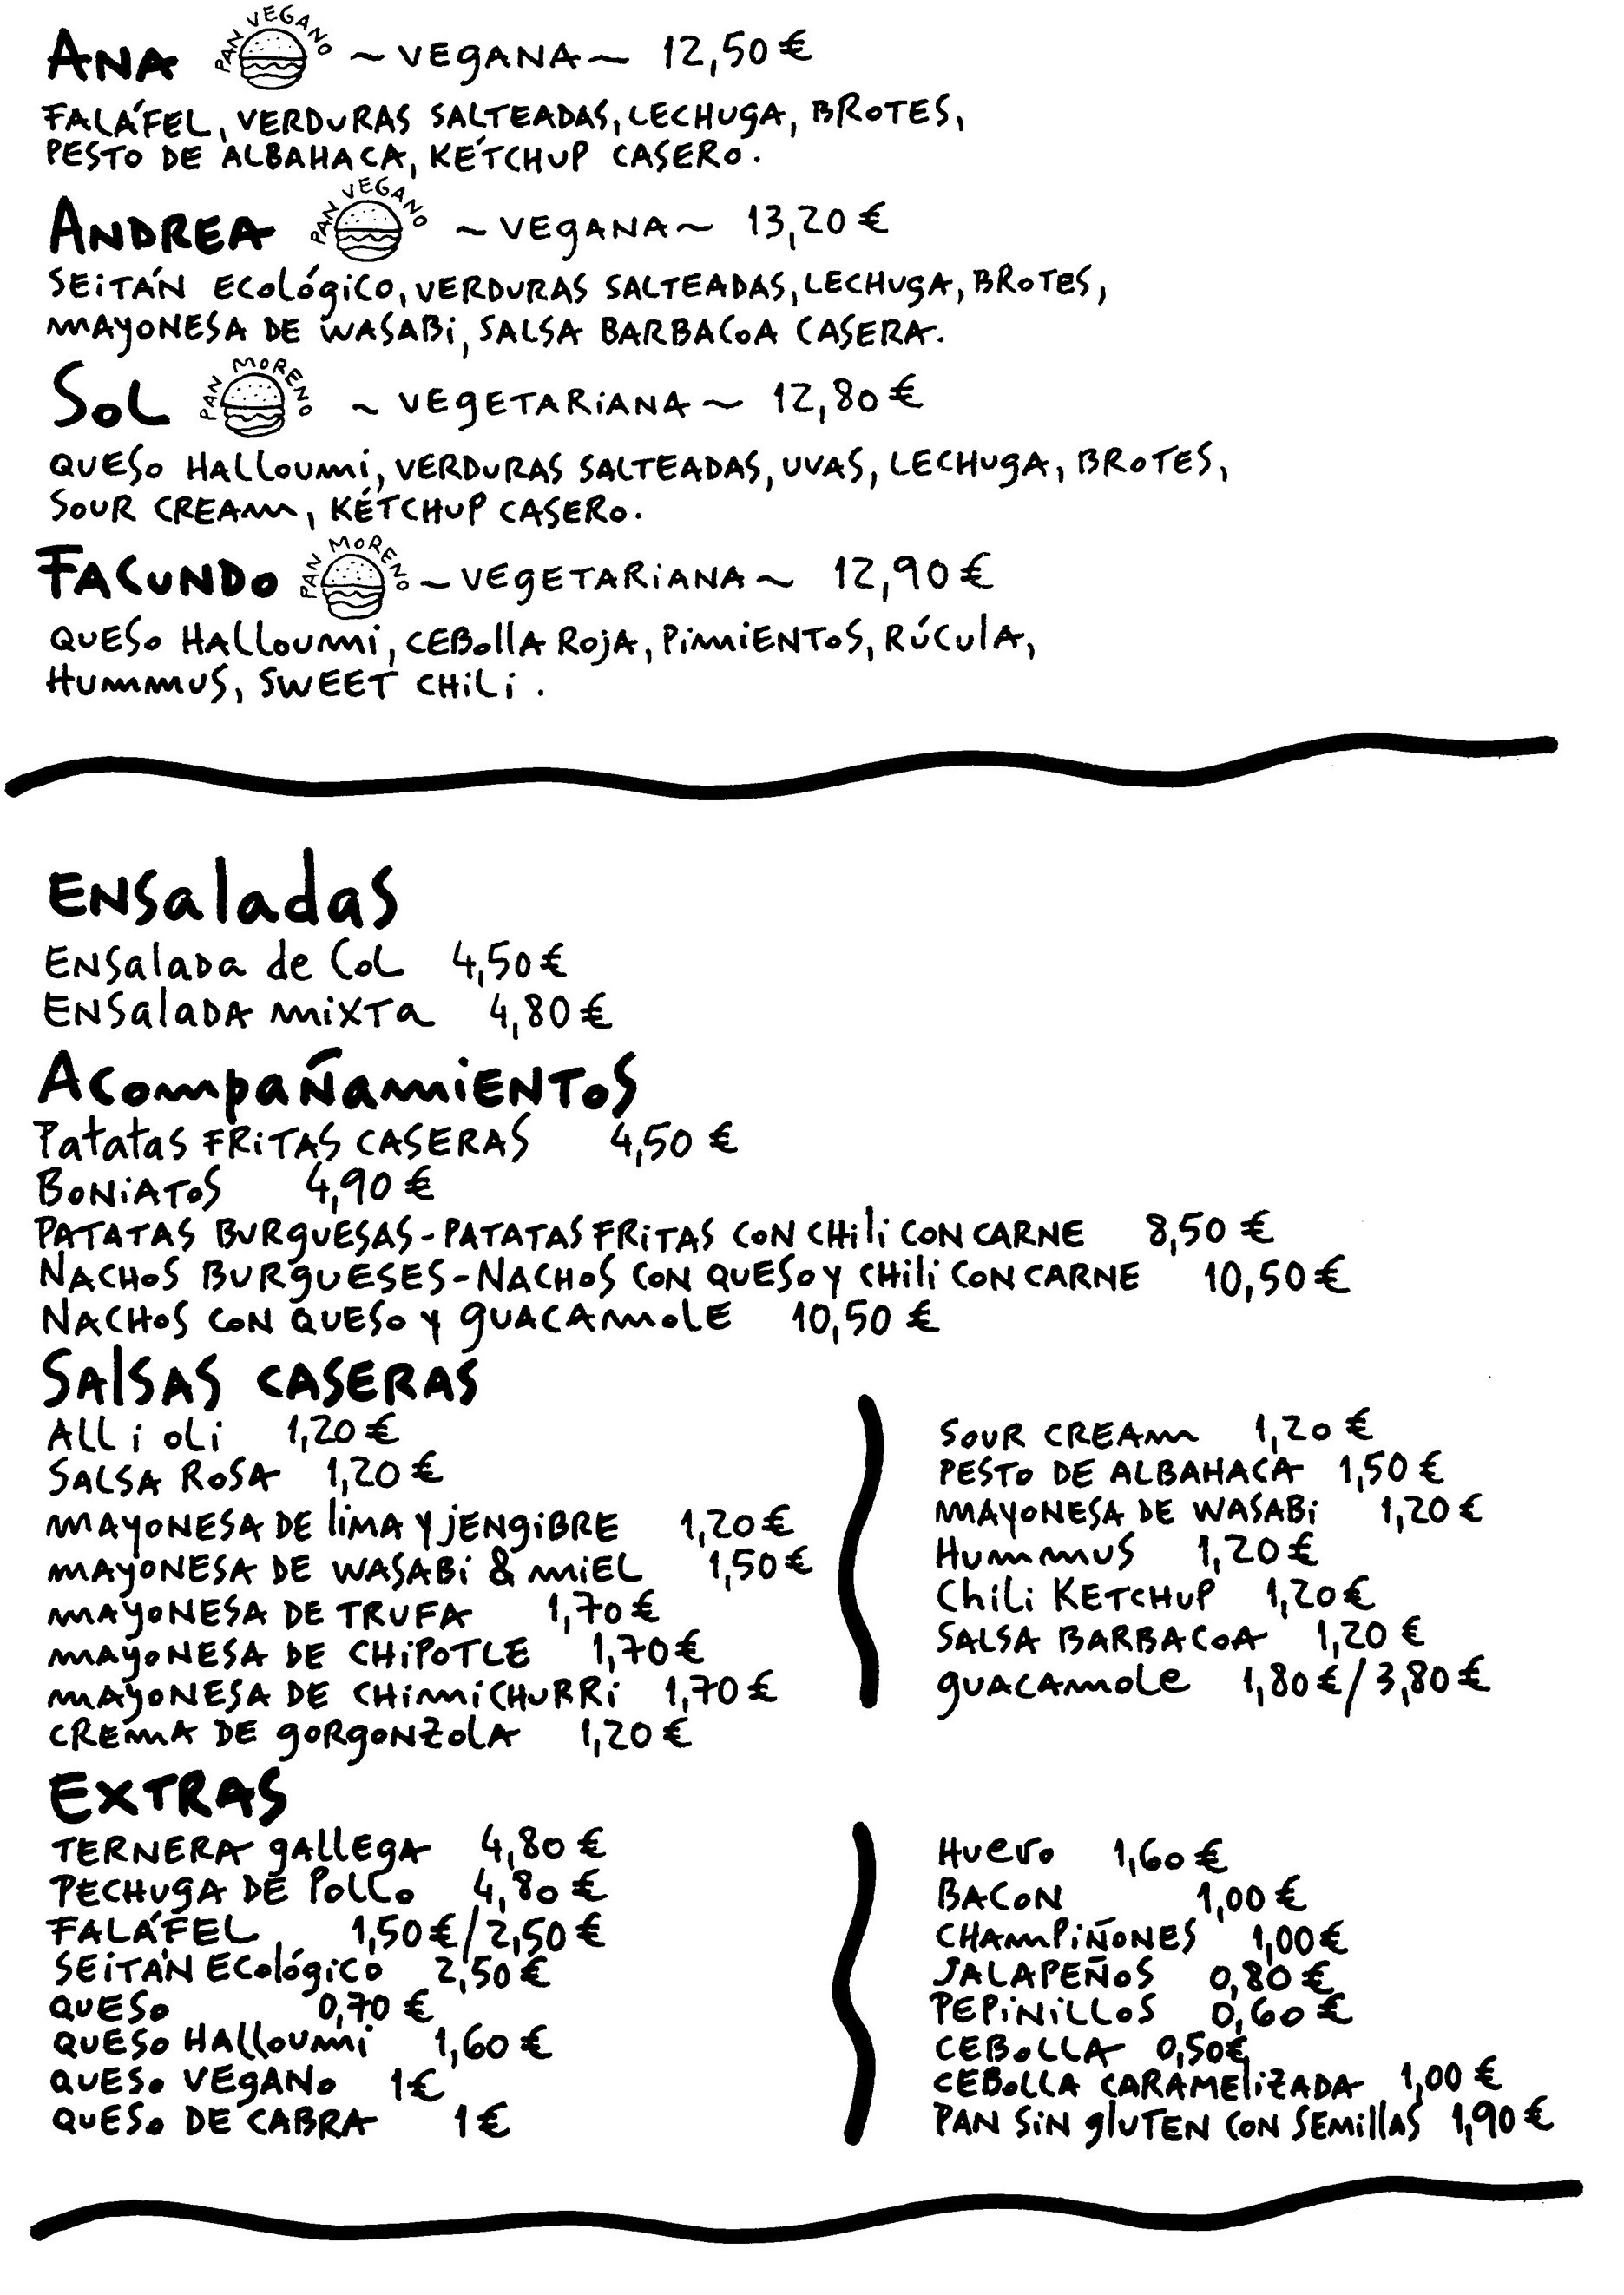 ANA PAN VEGANO ~ VEGANA ~ 12,50 €
FALÁFEL, VERDURAS SALTEADAS, LECHUGA, BROTES,
PESTO DE ALBAHACA, KÉTCHUP CASERO.
ANDREA PAN VEGANO ~ VEGANA ~ 13,20 €
SEITÁN ECOLÓGICO, VERDURAS SALTEADAS, LECHUGA, BROTES,
MAYONESA DE WASABI, SALSA BARBACOA CASERA.
SOL PAN MORENO ~ VEGETARIANA ~ 12,80 €
QUESO HALLOUMI, VERDURAS SALTEADAS, UVAS, LECHUGA, BROTES,
SOUR CREAM, KÉTCHUP CASERO.
FACUNDO PAN MORENO ~ VEGETARIANA ~ 12,90 €
QUESO HALLOUMI, CEBOLLA ROJA, PIMIENTOS, RÚCULA,
HUMMUS, SWEET CHILI.
Ensaladas
Ensalada de Col 4,50 €
Ensalada mixta 4,80 €
Acompañamientos
Patatas FRITAS CASERAS 4,50 €
BONIATOS 4,90 €
PATATAS BURGUESAS - PATATAS FRITAS CON CHILI CON CARNE 8,50 €
NACHOS BURGUESES - NACHOS CON QUESO Y CHILI CON CARNE 10,50 €
NACHOS CON QUESO Y GUACAMOLE 10,50 €
SALSAS CASERAS
ALL i OLi 1,20 €
SALSA ROSA 1,20 €
MAYONESA DE LIMA Y JENGIBRE 1,20 €
MAYONESA DE WASABI & MIEL 1,50 €
MAYONESA DE TRUFA 1,70 €
MAYONESA DE CHIPOTLE 1,70 €
MAYONESA DE CHIMICHURRI 1,70 €
CREMA DE GORGONZOLA 1,20 €
SOUR CREAM 1,20 €
PESTO DE ALBAHACA 1,50 €
MAYONESA DE WASABI 1,20 €
HUMMUS 1,20 €
CHILI KETCHUP 1,20 €
SALSA BARBACOA 1,20 €
GUACAMOLE 1,80 € / 3,80 €
EXTRAS
TERNERA GALLEGA 4,80 €
PECHUGA DE POLLO 4,80 €
FALÁFEL 1,50 € / 2,50 €
SEITÁN ECOLÓGICO 2,50 €
QUESO 0,70 €
QUESO HALLOUMI 1,60 €
QUESO VEGANO 1 €
QUESO DE CABRA 1 €
HUEVO 1,60 €
BACON 1,00 €
CHAMPIÑONES 1,00 €
JALAPEÑOS 0,80 €
PEPINILLOS 0,60 €
CEBOLLA 0,50 €
CEBOLLA CARAMELIZADA 1,00 €
PAN SIN GLUTEN CON SEMILLAS 1,90 €